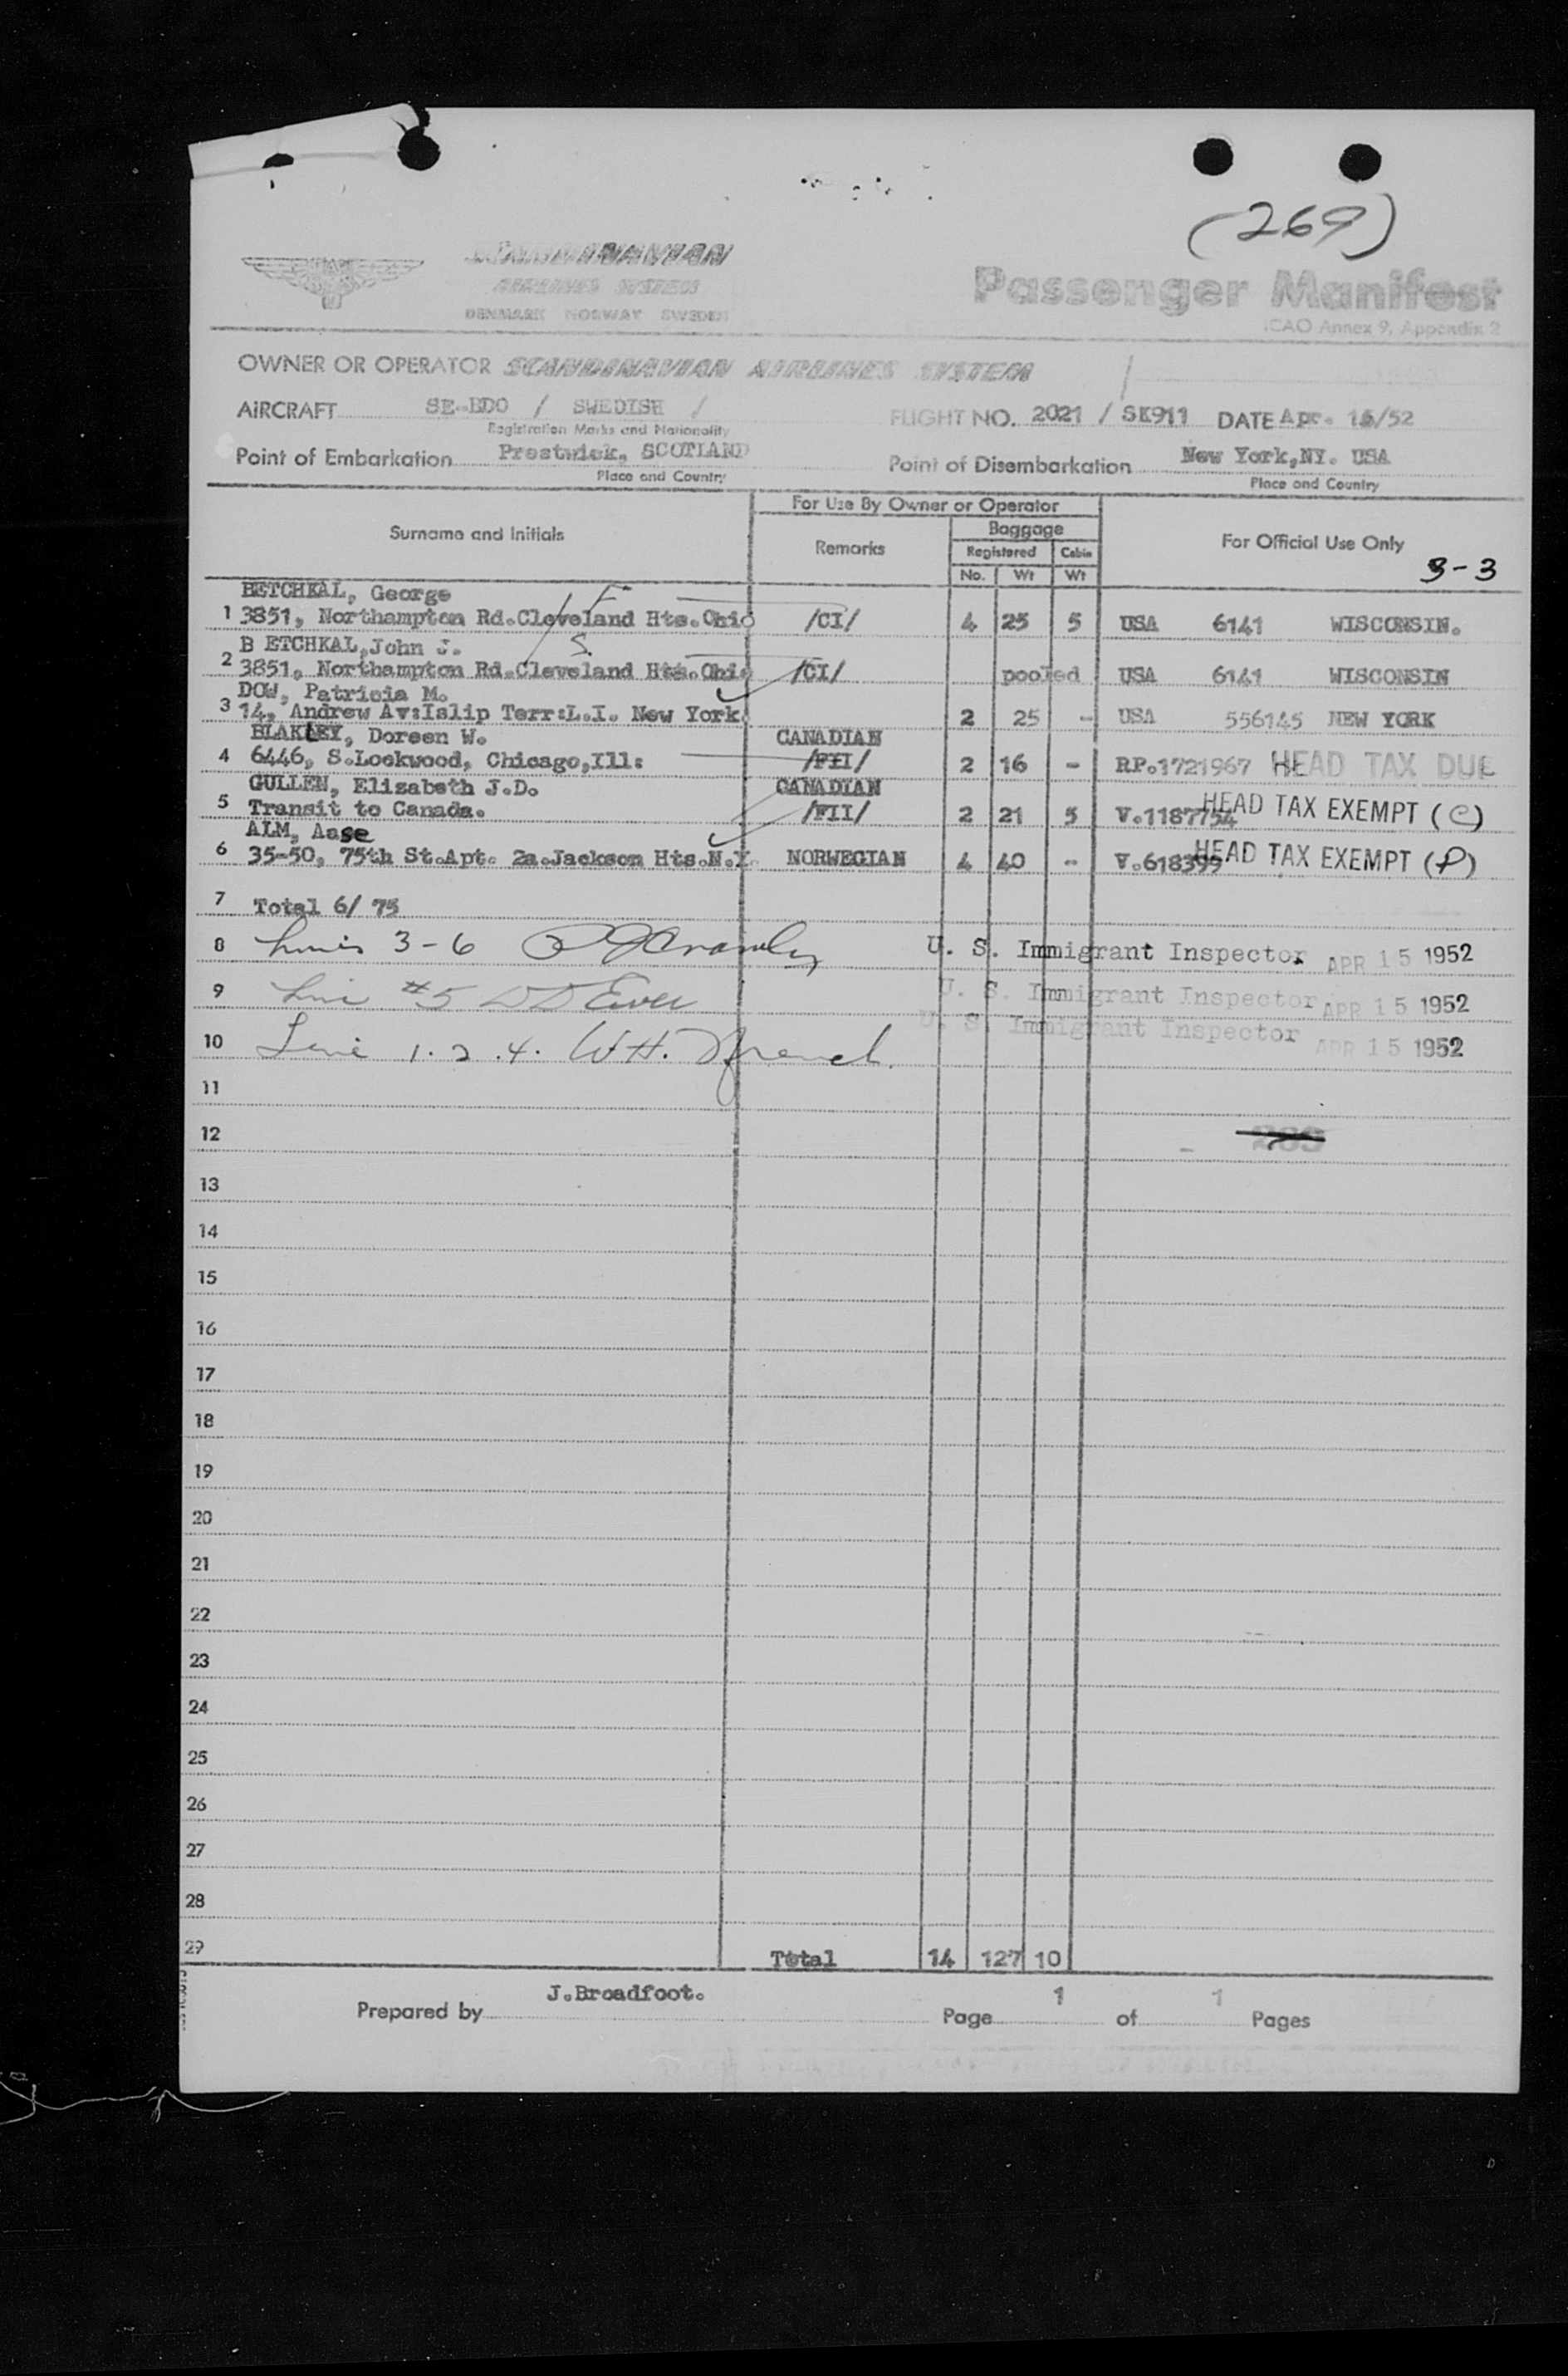 (269)
SCANDINAVIAN
AIRLINES SYSTEM
DENMARK NORWAY SWEDEN
Passenger Manifest
ICAO Annex 9, Appendix 2
OWNER OR OPERATOR SCANDINAVIAN AIRLINES SYSTEM
AIRCRAFT SE-BDO / SWEDISH /
Registration Marks and Nationality
FLIGHT NO. 2021 / SK911 DATE Apr. 15/52
Point of Embarkation Prestwick, SCOTLAND
Place and Country
Point of Disembarkation New York,NY. USA
Place and Country
Surname and Initials
For Use By Owner or Operator
Remarks
Baggage
Registered Cabin
No. Wt Wt
For Official Use Only
3-3
BETCHKAL, George
1 3851, Northampton Rd.Cleveland Hts.Ohio /CI/ 4 25 5 USA 6141 WISCONSIN.
B ETCHKAL,John J.
2 3851, Northampton Rd.Cleveland Hts.Ohio /CI/ pooled USA 6141 WISCONSIN
DOW, Patricia M.
3 14, Andrew Av:Islip Terr:L.I. New York. 2 25 - USA 556145 NEW YORK
BLAKLEY, Doreen W. CANADIAN
4 6446, S.Lockwood, Chicago,Ill: /FII/ 2 16 - RP.1721967 HEAD TAX DUE
GULLEN, Elizabeth J.D. CANADIAN
5 Transit to Canada. /FII/ 2 21 5 V.1187754 HEAD TAX EXEMPT (C)
ALM, Aase
6 35-50, 75th St.Apt. 2a.Jackson Hts.N.Y. NORWEGIAN 4 40 - V.618399 HEAD TAX EXEMPT (P)
7 Total 6/ 75
8 Lines 3-6 U. S. Immigrant Inspector APR 15 1952
9 Line #5 U. S. Immigrant Inspector APR 15 1952
10 Line 1. 2. 4. W.H. French. U. S. Immigrant Inspector APR 15 1952
11
12
13
14
15
16
17
18
19
20
21
22
23
24
25
26
27
28
29 Total 14 127 10
Prepared by J.Broadfoot. Page 1 of 1 Pages